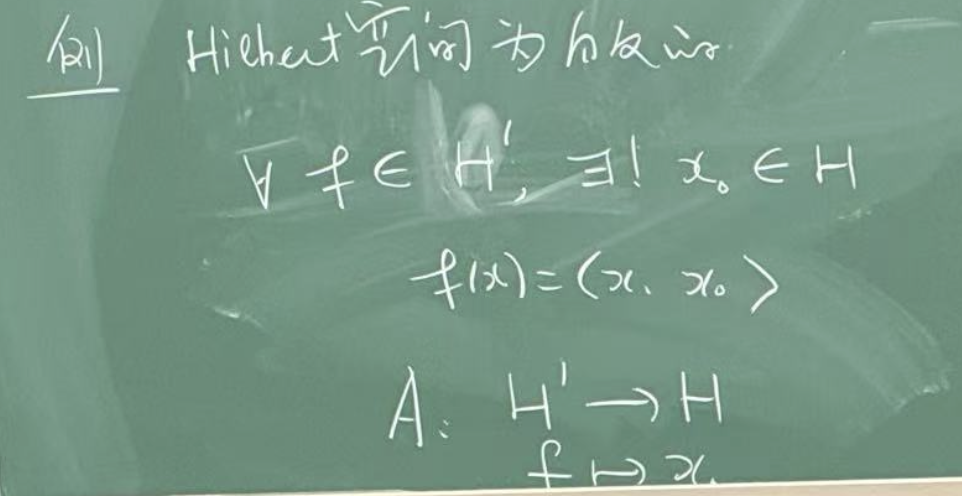 例 Hilbert 空间为自反的.
∀ f ∈ H', ∃! x₀ ∈ H
f(x) = (x, x₀>
A: H' → H
f ↦ x